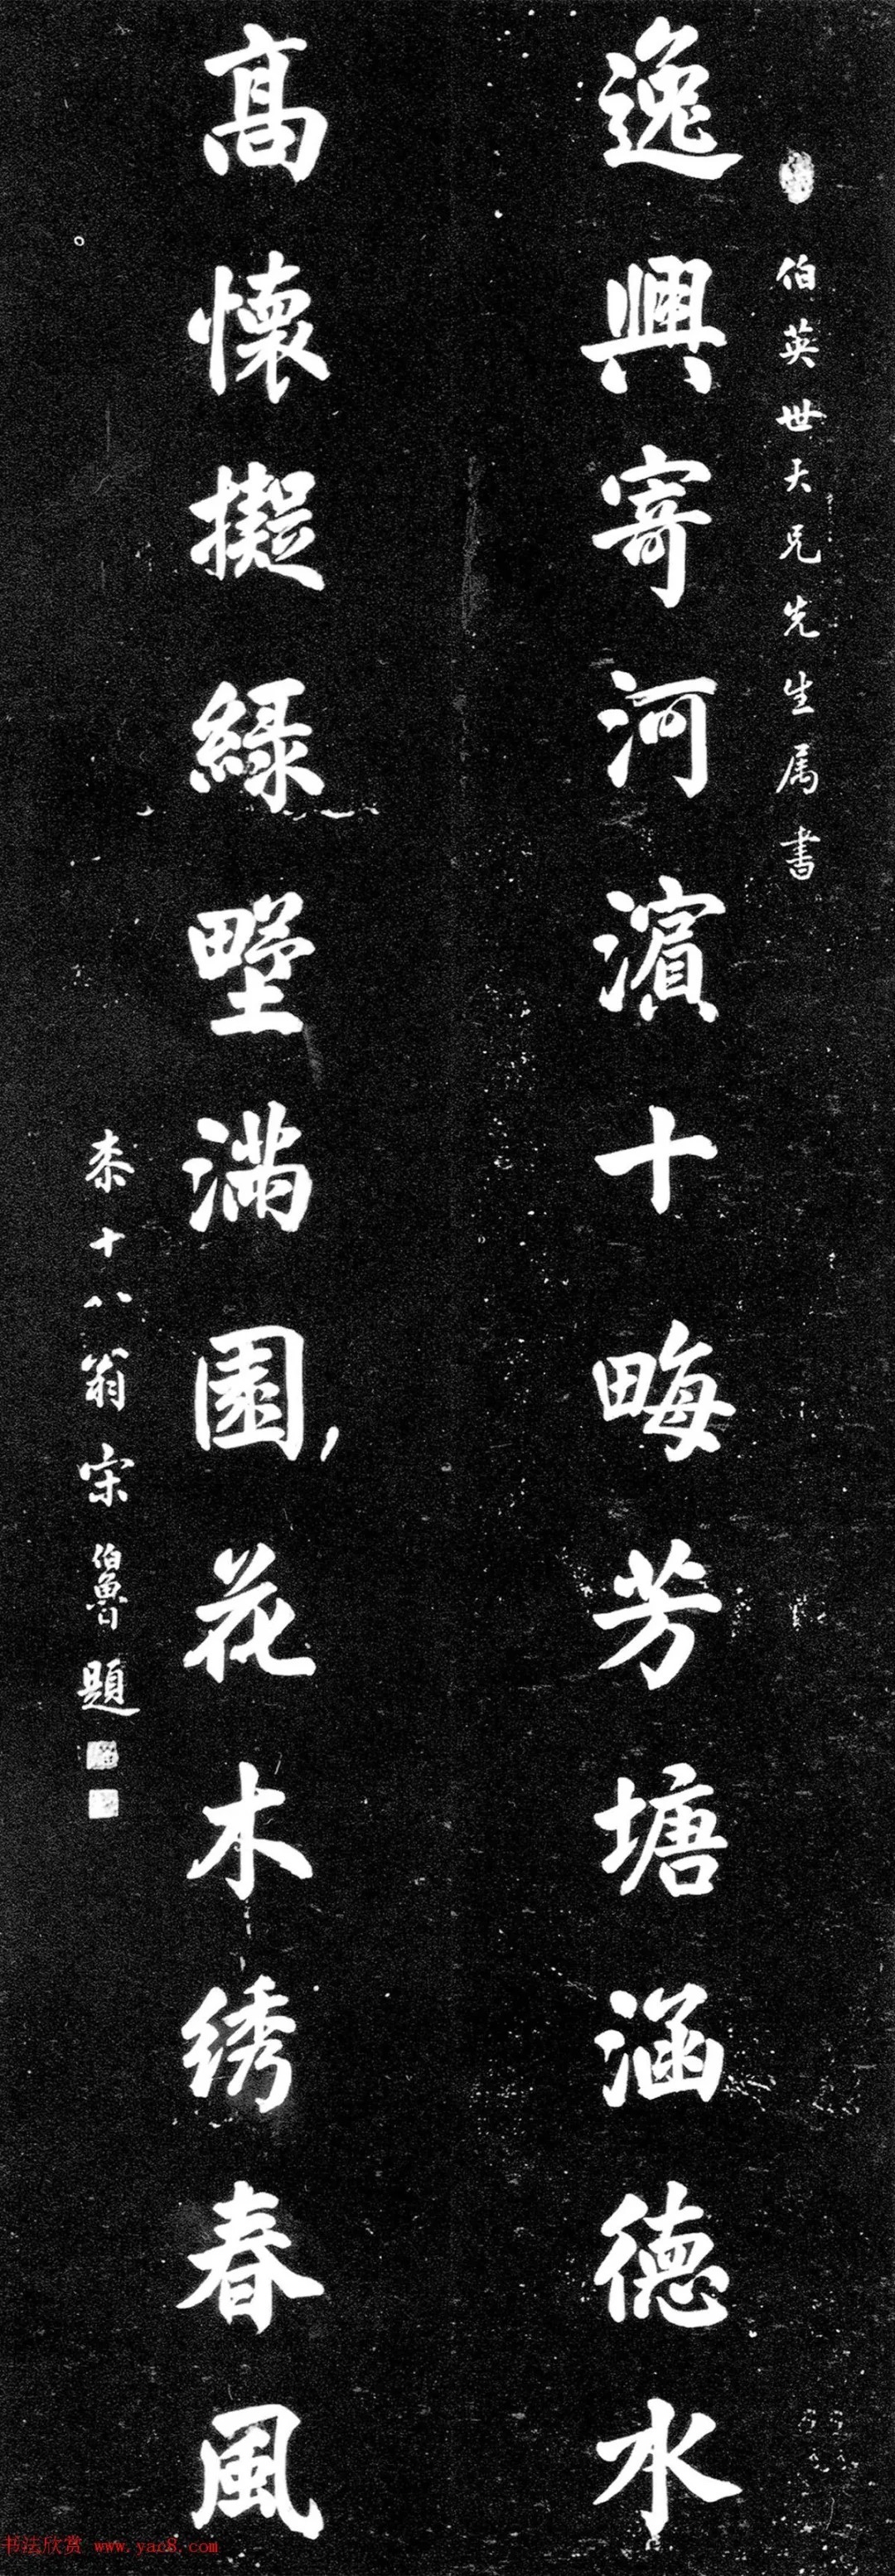 伯英世大兄先生属書
逸興寄河濱十畮芳塘涵德水
高懷擬綠墅滿園花木绣春風
柒十八翁宋伯魯題
书法欣赏 www.yac8.com